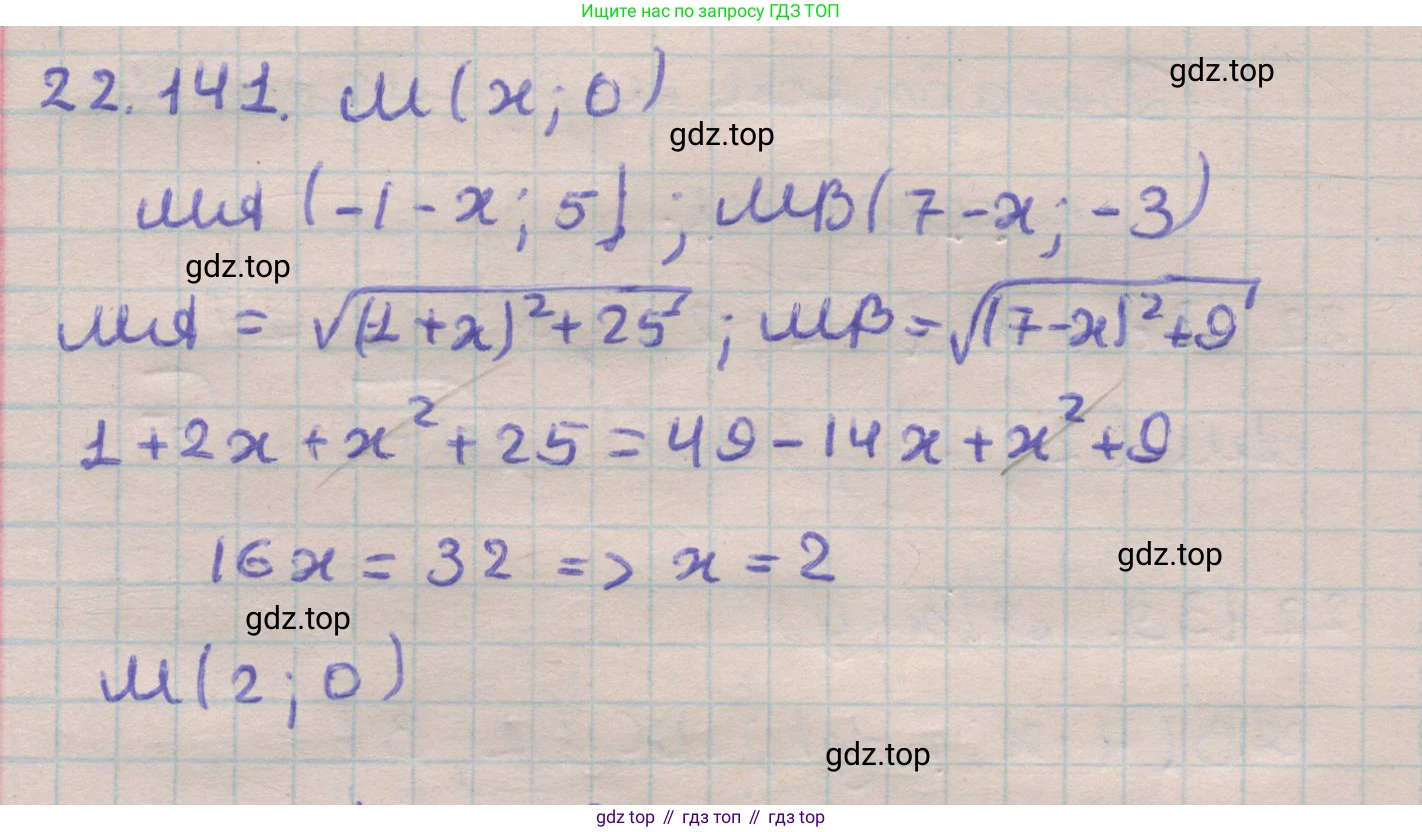 Ищите нас по запросу ГДЗ ТОП
22.141. M(x; 0)
gdz.top
gdz.top
MA(-1-x; 5); MB(7-x; -3)
gdz.top
MA = √((1+x)²+25); MB = √((7-x)²+9)
1+2x+x²+25=49-14x+x²+9
16x=32 => x=2
gdz.top
gdz.top
M(2; 0)
gdz.top
gdz.top // гдз топ // гдз top